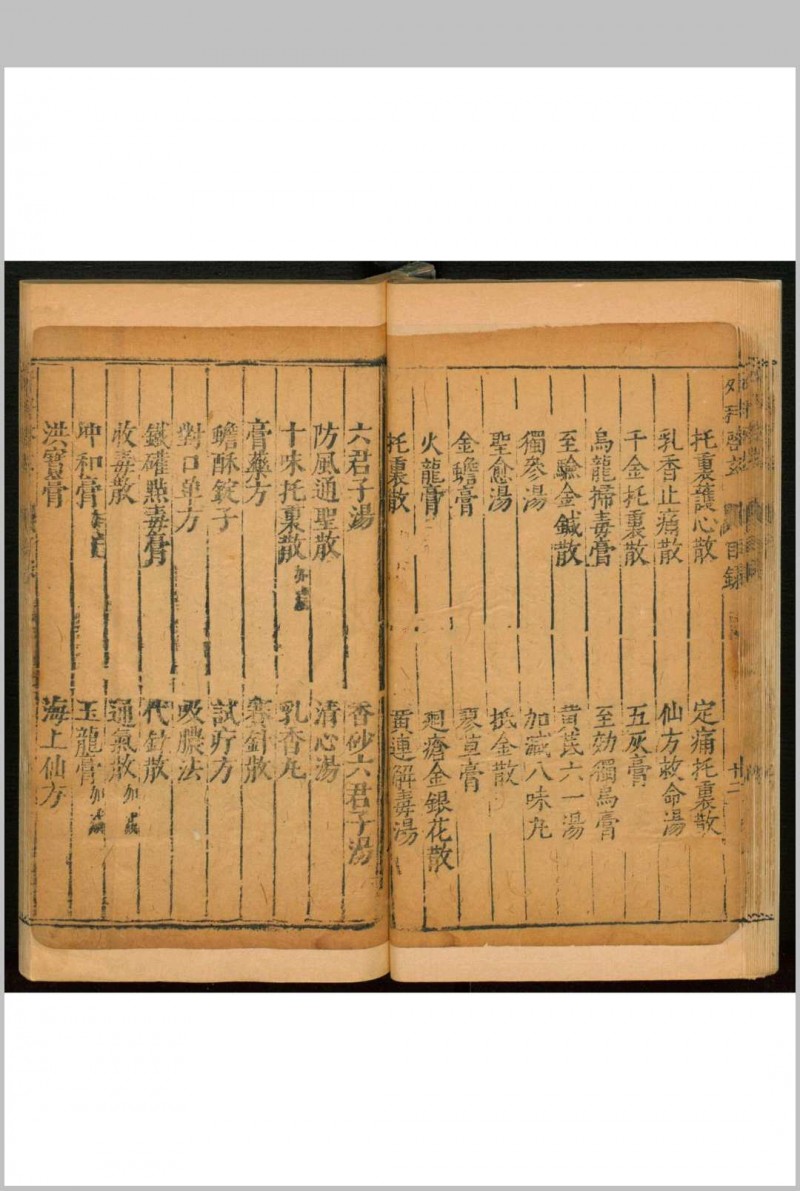 外科啓玄 目錄 廿二
托裏護心散 定痛托裏散
乳香止痛散 仙方救命湯
千金托裏散 五灰膏
烏龍掃毒膏 至効獨烏膏
至驗金鍼散 黃芪六一湯
獨參湯 加減八味丸
聖愈湯 抵金散
金蟾膏 藜草膏
火龍膏 廻瘡金銀花散
托裏散 黃連解毒湯
六君子湯 香砂六君子湯
防風通聖散 清心湯
十味托裏散加減 乳香丸
膏藥方 針散
蟾酥錠子 試疔方
對口单方 吸膿法
鐵礶㸃毒膏 代針散
收毒散 通氣散加減
冲和膏 玉龍膏加減
洪寳膏 海上仙方